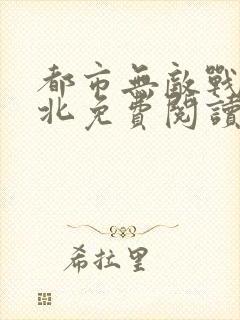 都市無敵戰
北免費閱讀
希拉里